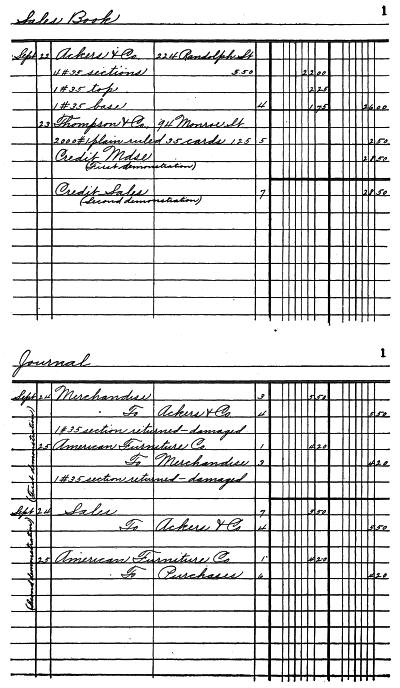 Sales Book 1
Sept 23 Ackers & Co 224 Randolph St
4 #35 sections 5.50 22 00
1 #35 top 2 25
1 #35 base 4 1 75 26 00
23 Thompson & Co, 94 Monroe St
2000 #1 plain ruled 35 cards 1 25 5 2 50
Credit Mdse 28 50
(First demonstration)
Credit Sales 7 28 50
(Second demonstration)
Journal 1
Sept 24 Merchandise 3 5 50
To Ackers & Co 4 5 50
1 #35 section returned - damaged
25 American Furniture Co. 1 4 20
To Merchandise 3 4 20
1 #35 section returned - damaged
(First demonstration)
Sept 24 Sales 7 5 50
To Ackers & Co 4 5 50
25 American Furniture Co 1 4 20
To Purchases 6 4 20
(Second demonstration)